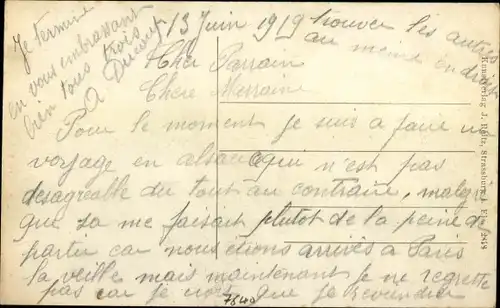 13 Juin 1919
trouver les autres
au meme endroit
Je termine
en vous embrassant
bien tous trois
A Ducour
Cher Parrain
Chere Marraine
Pour le moment je suis a faire un
voyage en alsace qui n'est pas
desagreable du tout au contraire, malgre
que sa me faisait plutot de la peine de
partir car nous etions arrivés a Paris
la veille mais maintenant je ne regrette
pas car je crois que je reviendrai
7640
Kunstverlag J. Strassburg i. Els. 2618